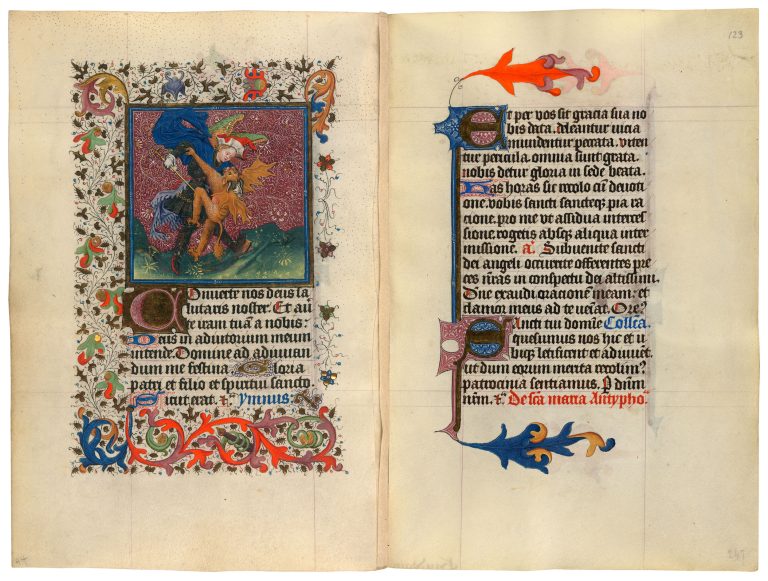 Onuerte nos deus sa
lutaris noster. Et auer
te iram tuā a nobis:
Deus in adiutorium meum
intende. Domine ad adiuuan
dum me festina. Gloria
patri et filio et spiritui sancto.
Sicut erat. &c̄ ymnus:
123
Et per vos sit gracia sua no
bis data. deleantur vicia
mundentur peccata. viten
tur pericula. omnia sunt grata.
nobis detur gloria in sede beata.
Has horas sic recolo cū deuoti
one. vobis sancti sancteq; pia ra
cione. pro me vt assidua interces
sione. rogetis absq; aliqua inter
missione. a. Subuenite sancti
dei angeli occurrite offerentes pre
ces nr̄as in conspectu dei altissimi.
Dn̄e exaudi oracionē meam: et
clamor meus ad te veniat. Ore᷒
ancti tui domīe Collc̄a.
quesumus nos hic et u
biq; letificent et adiuuēt.
ut dum eorum merita recolim᷒
patrocinia sentiamus. P dn̄m
nr̄m. &c̄ De sc̄a maria Antypho᷒
247